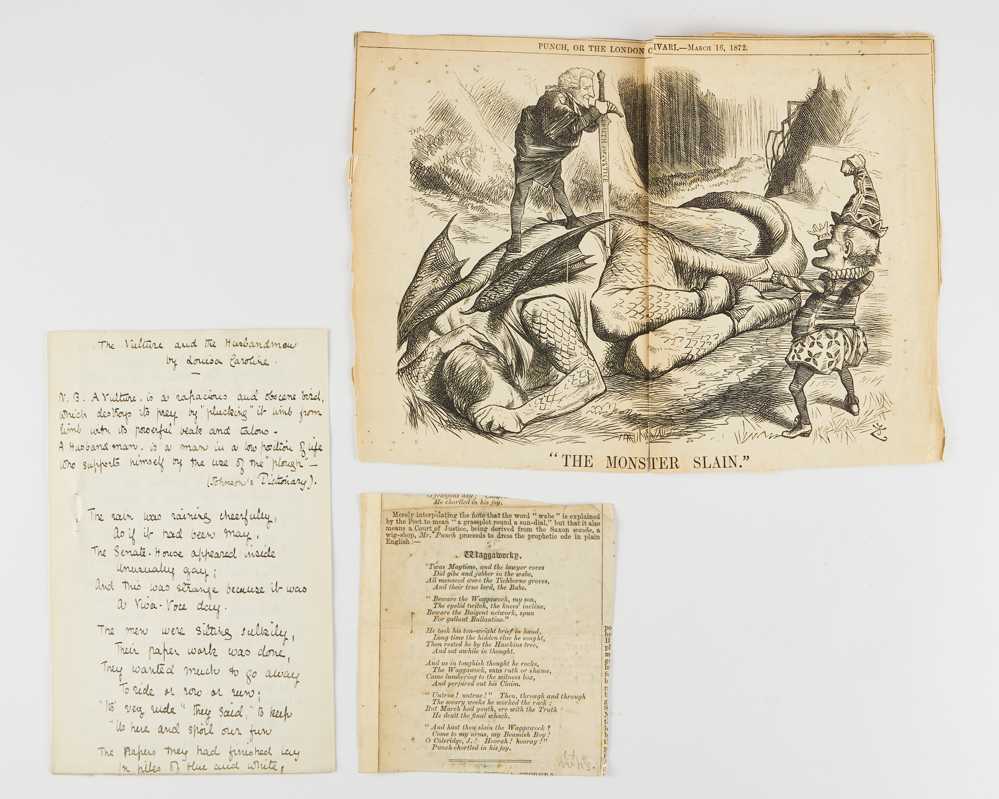 PUNCH, OR THE LONDON C IVARI.—MARCH 16, 1872.
"THE MONSTER SLAIN."
The Vulture and the Husbandman
by Louisa Caroline.
N.B. A Vulture is a rapacious and obscene bird,
which destroys its prey by "plucking" it limb from
limb with its powerful beak and talons.
A Husbandman is a man in a low position of life
who supports himself by the use of the "plough" —
(Johnson's Dictionary).
The rain was raining cheerfully,
As if it had been May,
The Senate-House appeared inside
Unusually gay;
And this was strange because it was
A Viva-Voce day.
The men were sitting sulkily,
Their paper work was done,
They wanted much to go away
To ride or row or run;
"It's very rude" they said, "to keep
"Us here and spoil our fun
The Papers they had finished lay
In piles of blue and white,
Me chortled in his joy.
Merely interpolating the note that the word "wabe" is explained
by the Poet to mean "a grassplot round a sun-dial," but that it also
means a Court of Justice, being derived from the Saxon waube, a
wig-shop, Mr. Punch proceeds to dress the prophetic ode in plain
English:—
Waggawocky.
'Twas Maytime, and the lawyer coves
Did gibe and jabber in the wabe,
All menaced were the Tichborne groves,
And their true lord, the Babe.
"Beware the Waggawock, my son,
The eyelid twitch, the knees' incline,
Beware the Baigent network, spun
For gallant Ballantine."
He took his ton-weight brief in hand,
Long time the hidden clue he sought,
Then rested he by the Hawkins tree,
And sat awhile in thought.
And as in toughish thought he rocks,
The Waggawock, sans ruth or shame,
Came lumbering to the witness box,
And perjured out his Claim.
"Untrue! untrue!" Then, through and through
The weary weeks he worked the rack;
But March had youth, ere with the Truth
He dealt the final whack.
"And hast thou slain the Waggawock?
Come to my arms, my Beamish Boy!
O Coleridge, J.! Hoorah! hooray!"
Punch chortled in his joy.